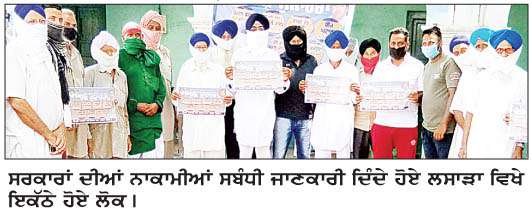 ਸਰਕਾਰਾਂ ਦੀਆਂ ਨਾਕਾਮੀਆਂ ਸਬੰਧੀ ਜਾਣਕਾਰੀ ਦਿੰਦੇ ਹੋਏ ਲਸਾੜਾ ਵਿਖੇ
ਇਕੱਠੇ ਹੋਏ ਲੋਕ।